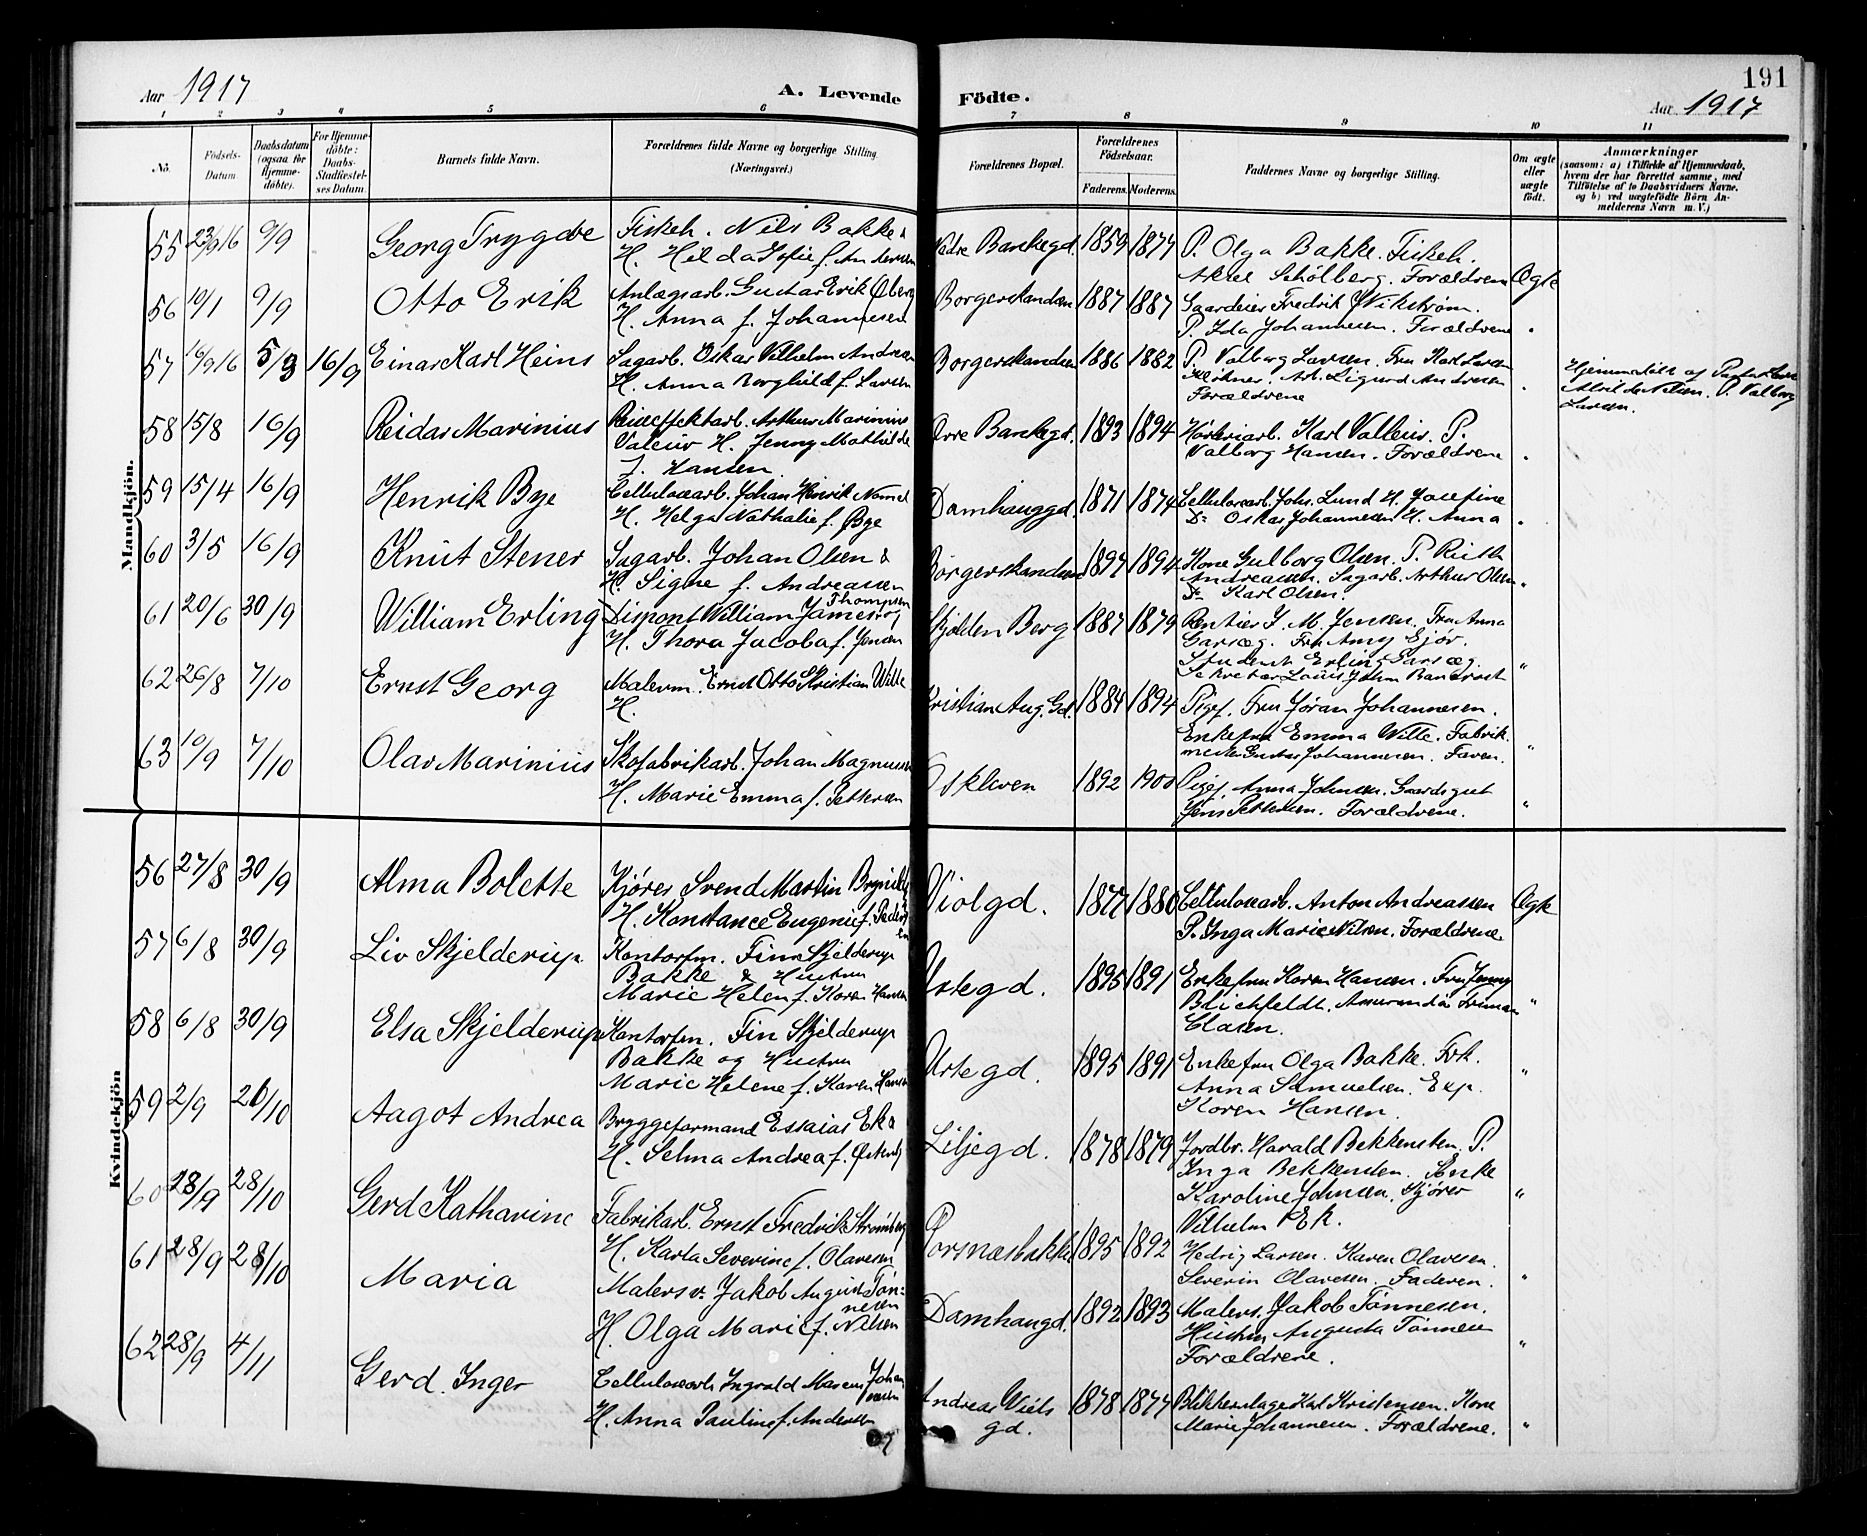 191
Aar 1917
A. Levende Födte.
Aar 1917
1 2 3 4 5 6 7 8 9 10 11
No.
Födsels-Datum.
Daabsdatum (ogsaa for Hjemme-döbte).
For Hjemme-döbte: Daabs-Stadfæstel-ses Datum.
Barnets fulde Navn.
Forældrenes fulde Navne og borgerlige Stilling (Næringsvei.)
Forældrenes Bopæl.
Forældrenes Födselsaar.
Faderens. Moderens.
Faddernes Navne og borgerlige Stilling.
Om ægte eller uægte födt.
Anmærkninger
(saasom: a) i Tilfælde af Hjemmedaab, hvem der har forrettet samme, med Tilföielse af to Daabsvidners Navne, og b) ved uægtefödte Börn An-melderens Navn m. V.)
Mandkjön.
55 23/9 16 9/9 Georg Trygve Fiskeh. Nils Bakke &
H. Hilda Sofie f. Andersen
Nedre Bankegd. 1859 1877 P. Olga Bakke. Fiskeh.
Aksel Schølberg. Forældrene Ægte
56 10/1 9/9 Otto Erik Anlægsarb. Gustav Erik Øberg
H. Anna f. Johannesen
Borgerskandsen 1887 1887 Gaardeier Fredrik Wikstrøm.
P. Ida Johannesen. Forældrene "
57 16/9 16 5/3 16/9 Einar Karl Heins Sagarb. Oskar Vilhelm Andresen
H. Anna Borghild f. Larsen
Borgerskandsen 1886 1882 P. Valborg Larsen. Fru Karl Larsen
Arb. Sigurd Andresen
Forældrene "
Hjemmedøbt af
P. Valborg
Larsen.
58 15/8 16/9 Reidar Marinius Arthur Marinius
H. Jenny Mathilde
f. Hansen
Øvre Bankegd. 1893 1894 Karl P.
Valborg Hansen. Forældrene "
59 15/4 16/9 Henrik Bye Cellulosearb. Johan Henrik
H. Helga Nathalie f. Bye
Damhauggd. 1871 1874 Cellulosearb. Johs. Lund H. Josefine
Do Oskar Johannesen H. Anna "
60 3/5 16/9 Knut Stener Sagarb. Johan Olsen &
H. Signe f. Andreassen
Borgerskandsen 1897 1894 Kone Gulborg Olsen. P. Ruth
Andreassen. Sagarb. Arthur Olsen
Do Karl Olsen. "
61 20/6 30/9 William Erling Disponent William James Thompson og
H. Thora Jacoba f. Jensen
Skjolden Berg 1887 1879 Rentier J. M. Jensen. Fru Anna
Garsæg. Fru Amy Ejør.
Student Erling Garsæg.
Sekretær Louis John "
62 26/8 7/10 Ernst Georg Malerm. Ernst Otto Kristian Wille
H.
Kristian Aug. Gd. 1884 1894 Pigef. Fru Jøran Johannesen.
Enkefru Emma Wille. Fabrik-
mester Gustav Johannesen. Faren. "
63 10/9 7/10 Olav Marinius Skofabrikarb. Johan Magnussen
H. Marie Emma f. Pettersen
Oskleven 1892 1900 Pigef. Anna Johnsen. Gaardsgut
Jens Pettersen. Forældrene. "
Kvindekjön
56 27/8 30/9 Alma Bolette Kjører Svend Martin Brynild
H. Konstance Eugenie f. Pedersen
Violgd. 1877 1880 Cellulosearb. Anton Andreassen
P. Inga Marie Nilsen. Forældrene Ægte
57 6/8 30/9 Liv Skjelderup Kontorfm. Finn Skjelderup
Bakke & Hustru
Marie Helen f. Koren Hansen
Urtegd. 1895 1891 Enkefru Koren Hansen. Fru Jenny
Blichfeldt.
Clasen. "
58 6/8 30/9 Elsa Skjelderup Kontorfm. Fin Skjelderup
Bakke og Hustru
Marie Helene f. Karen Hansen
Urtegd. 1895 1891 Enkefru Olga Bakke. Frk.
Anna Samuelsen. Exp.
Koren Hansen. "
59 2/9 20/10 Aagot Andrea Bryggeformand Essaias Ek &
H. Selma Andrea f.
Liljegd. 1878 1879 Jordbr. Harald Bekkensten. P.
Inga Bekkensten. Enke
Karoline Johnsen. Kjører
Vilhelm Ek. "
60 28/9 28/10 Gerd Katharine Fabrikarb. Ernst Fredrik Strømberg
H. Karla Severine f. Olavesen
Porsnæsbakken 1895 1892 Hedvig Larsen. Karen Olavesen.
Severin Olavesen. Faderen. "
61 28/9 28/10 Maria Malersv. Jakob August Tøn-
nesen
H. Olga Marie f. Nilsen
Damhaugd. 1892 1893 Malers. Jakob Tønnesen.
Hustru Augusta Tønnesen
Forældrene. "
62 28/9 4/11 Gerd Inger Cellulosearb. Ingvald Marius Johannesen
H. Anna Pauline f. Andersen
Andreas Wiels
gd. 1878 1877 Blikkenslager Karl Kristensen. Kone
Marie Johannesen. Forældrene. "